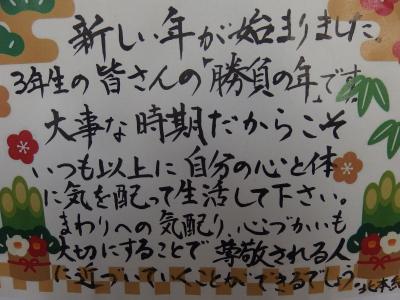 新しい年が始まりました。
3年生の皆さんの「勝負の年」です
大事な時期だからこそ
いつも以上に自分の心と体
に気を配って生活して下さい。
まわりへの気配り、心づかいも
大切にすることで尊敬される人
に近づいていくことができるでしょう